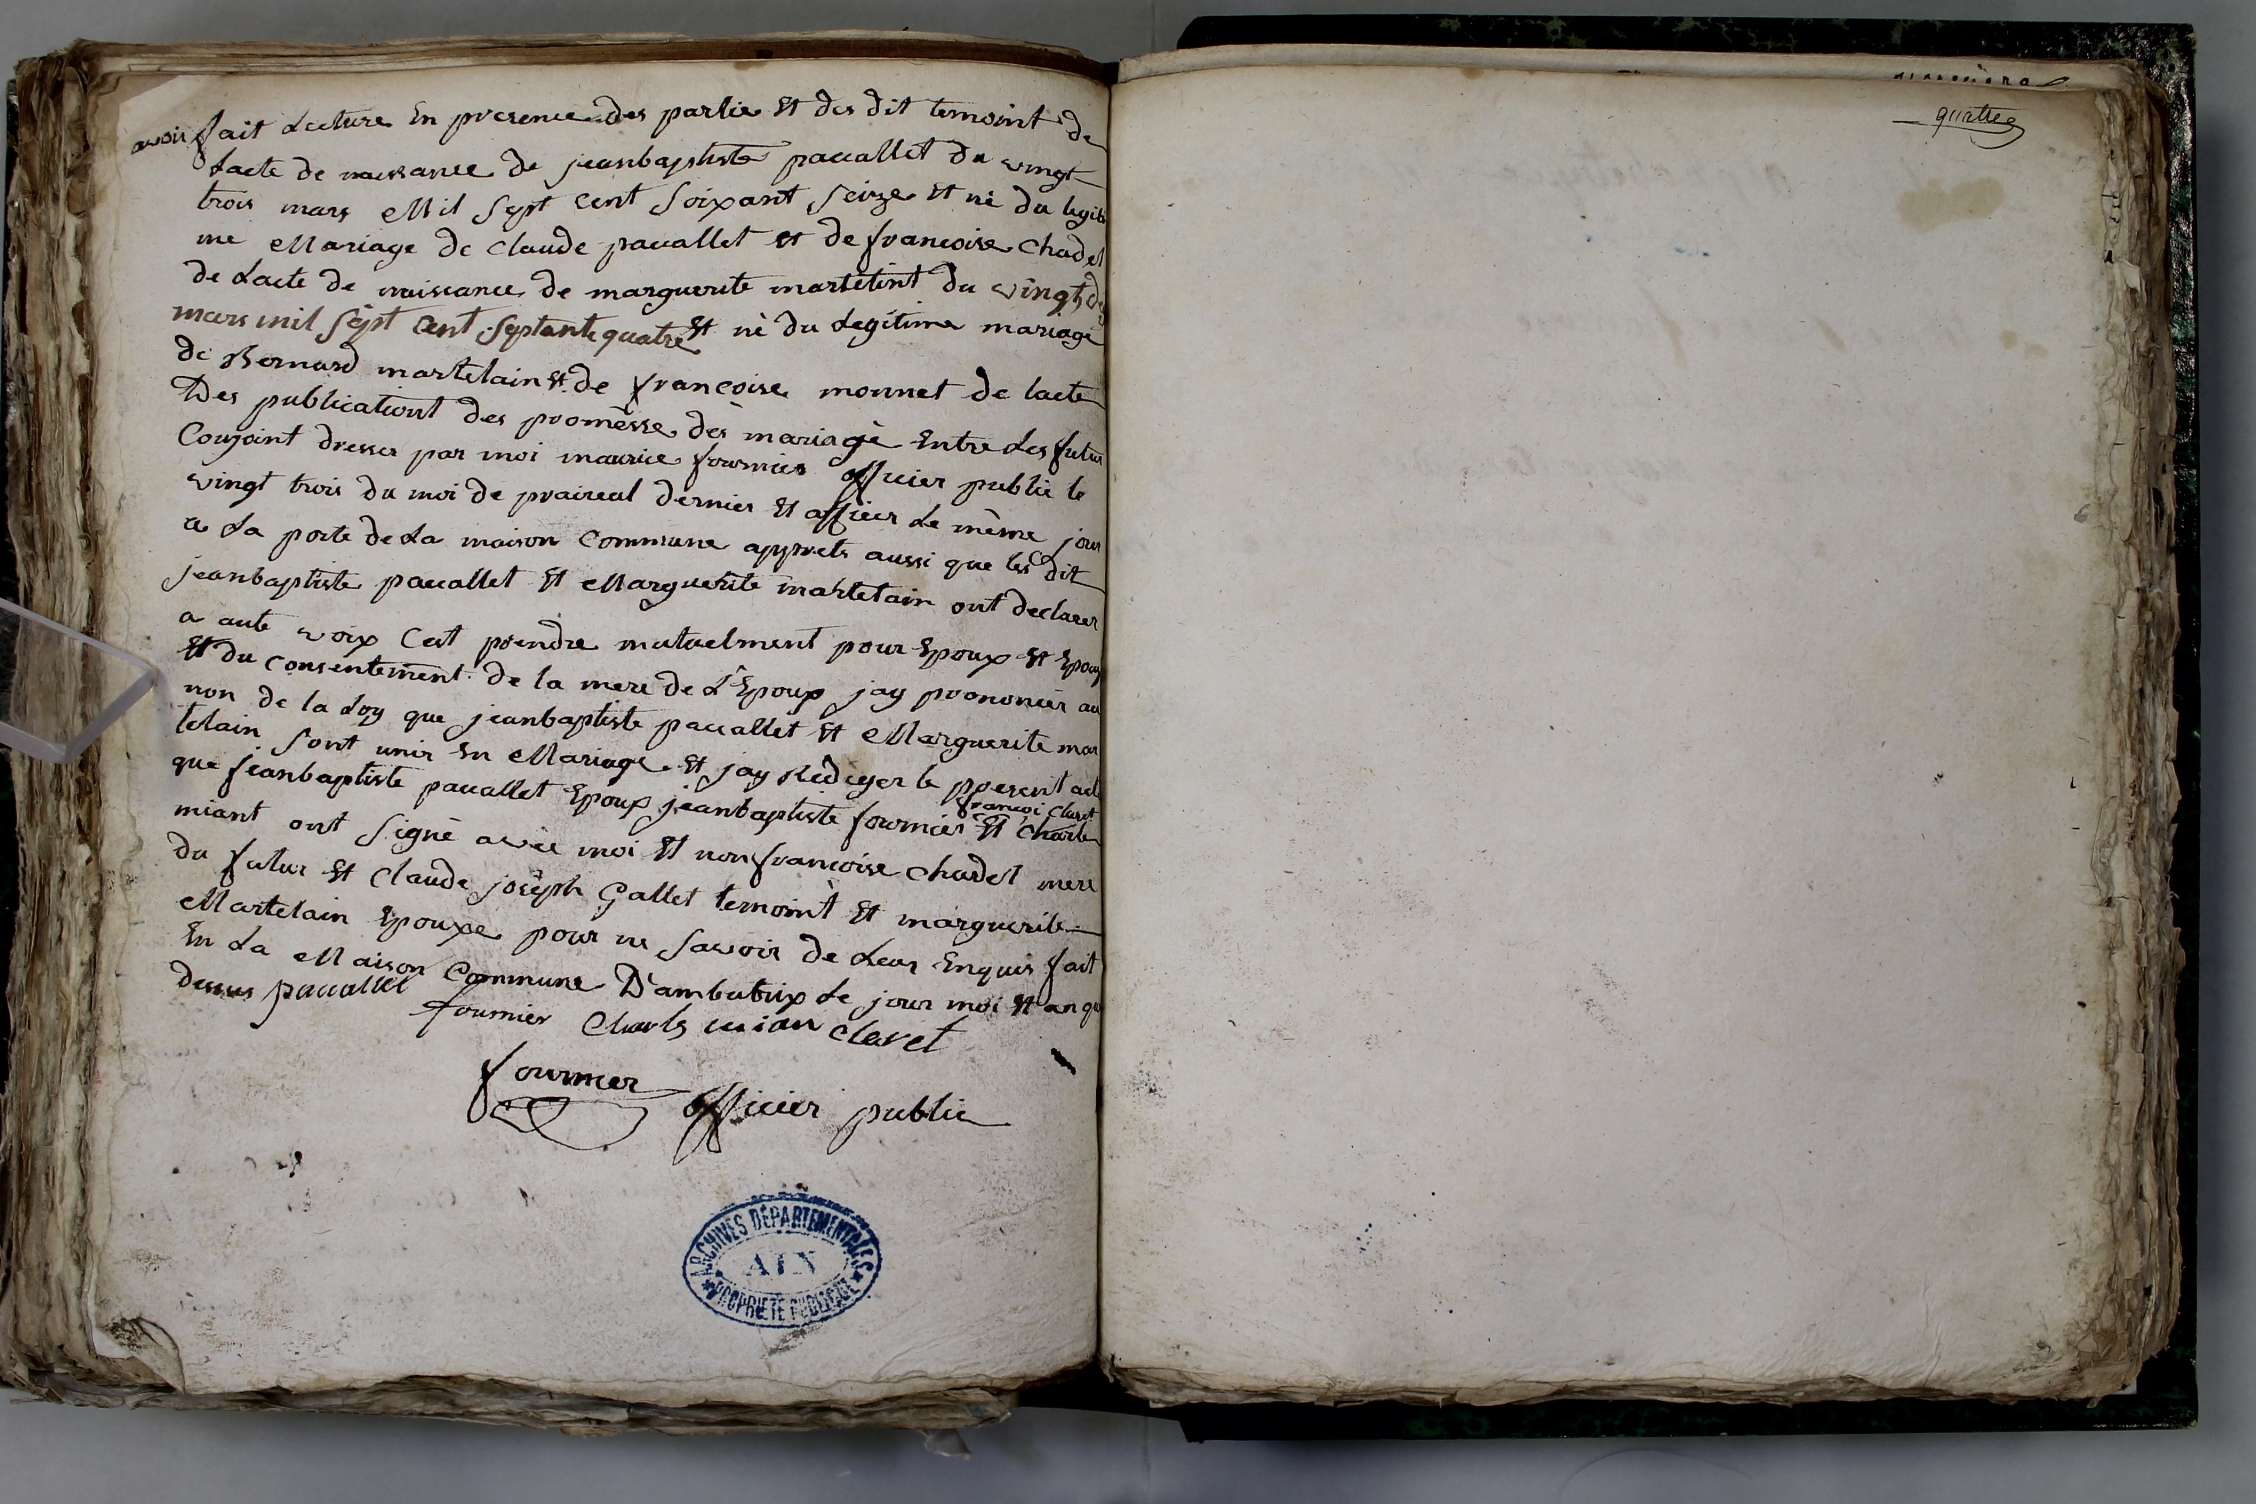 avoir fait Lecture En presence des partie Et des dit temoint de
Lacte de naissance de jeanbaptiste pauallet du vingt
trois mars Mil Sept Cent Soixant Seize Et né du legiti
me Mariage de Claude pauallet et de francoise Chadel
de Lacte de naiscance de marguerite martelint du vingt
mars mil Sept Cent Septante quatre Et né du Legitime mariage
de Bernard martelain Et de francoise monnet de lacte
Des publicationt des promêsse dès mariagè Entre Les futur
Conjoint dresser par moi maurice fournier officier public le
vingt trois du moi de praireal dernier Et afficer Le même jour
a La porte de La maison Commune apprets aussi que les dit
jeanbaptiste pauallet Et Marguerite martelain ont declarer
a aute voix Cest prendre mutuelment pour Epoux Et Epoux
Et du consentement de la mere de L'Epoux jay prononcér au
non de la Loy que jeanbaptiste pauallet Et Marguerite mar
telain Sont unir En Mariage Et jay Redeger le present acte
francoi Claret
que jeanbaptiste pauallet Epoux jeanbaptiste fournier Et Charle
miant ont Signé avec moi Et non francoise Chadel mere
du futur Et Claude joseph Gallet temoint Et marguerite
Martelain Epouxe pour ne Savoir de Leur Enquis fait
En La Maison Commune D'ambutrix Le jour moi Et an que
dessus pauallet
fournier Charls mian Claret
fournier officier public
ARCHIVES DÉPARTEMENTALES
AIN
PROPRIÉTÉ PUBLIQUE
quatre